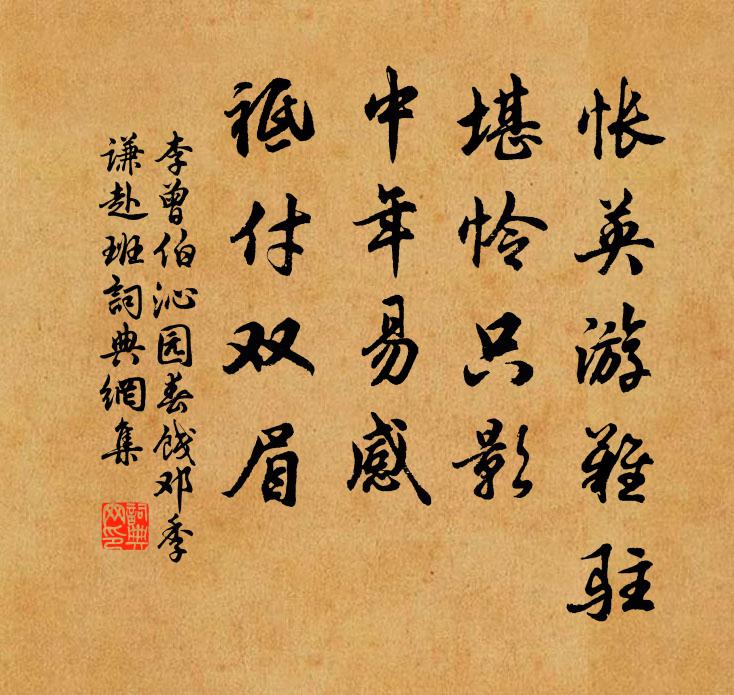 怅英游难驻
堪怜只影
中年易感
祗付双眉
李曾伯沁园春饯邓季
谦赴班詞典網集
詞典网印